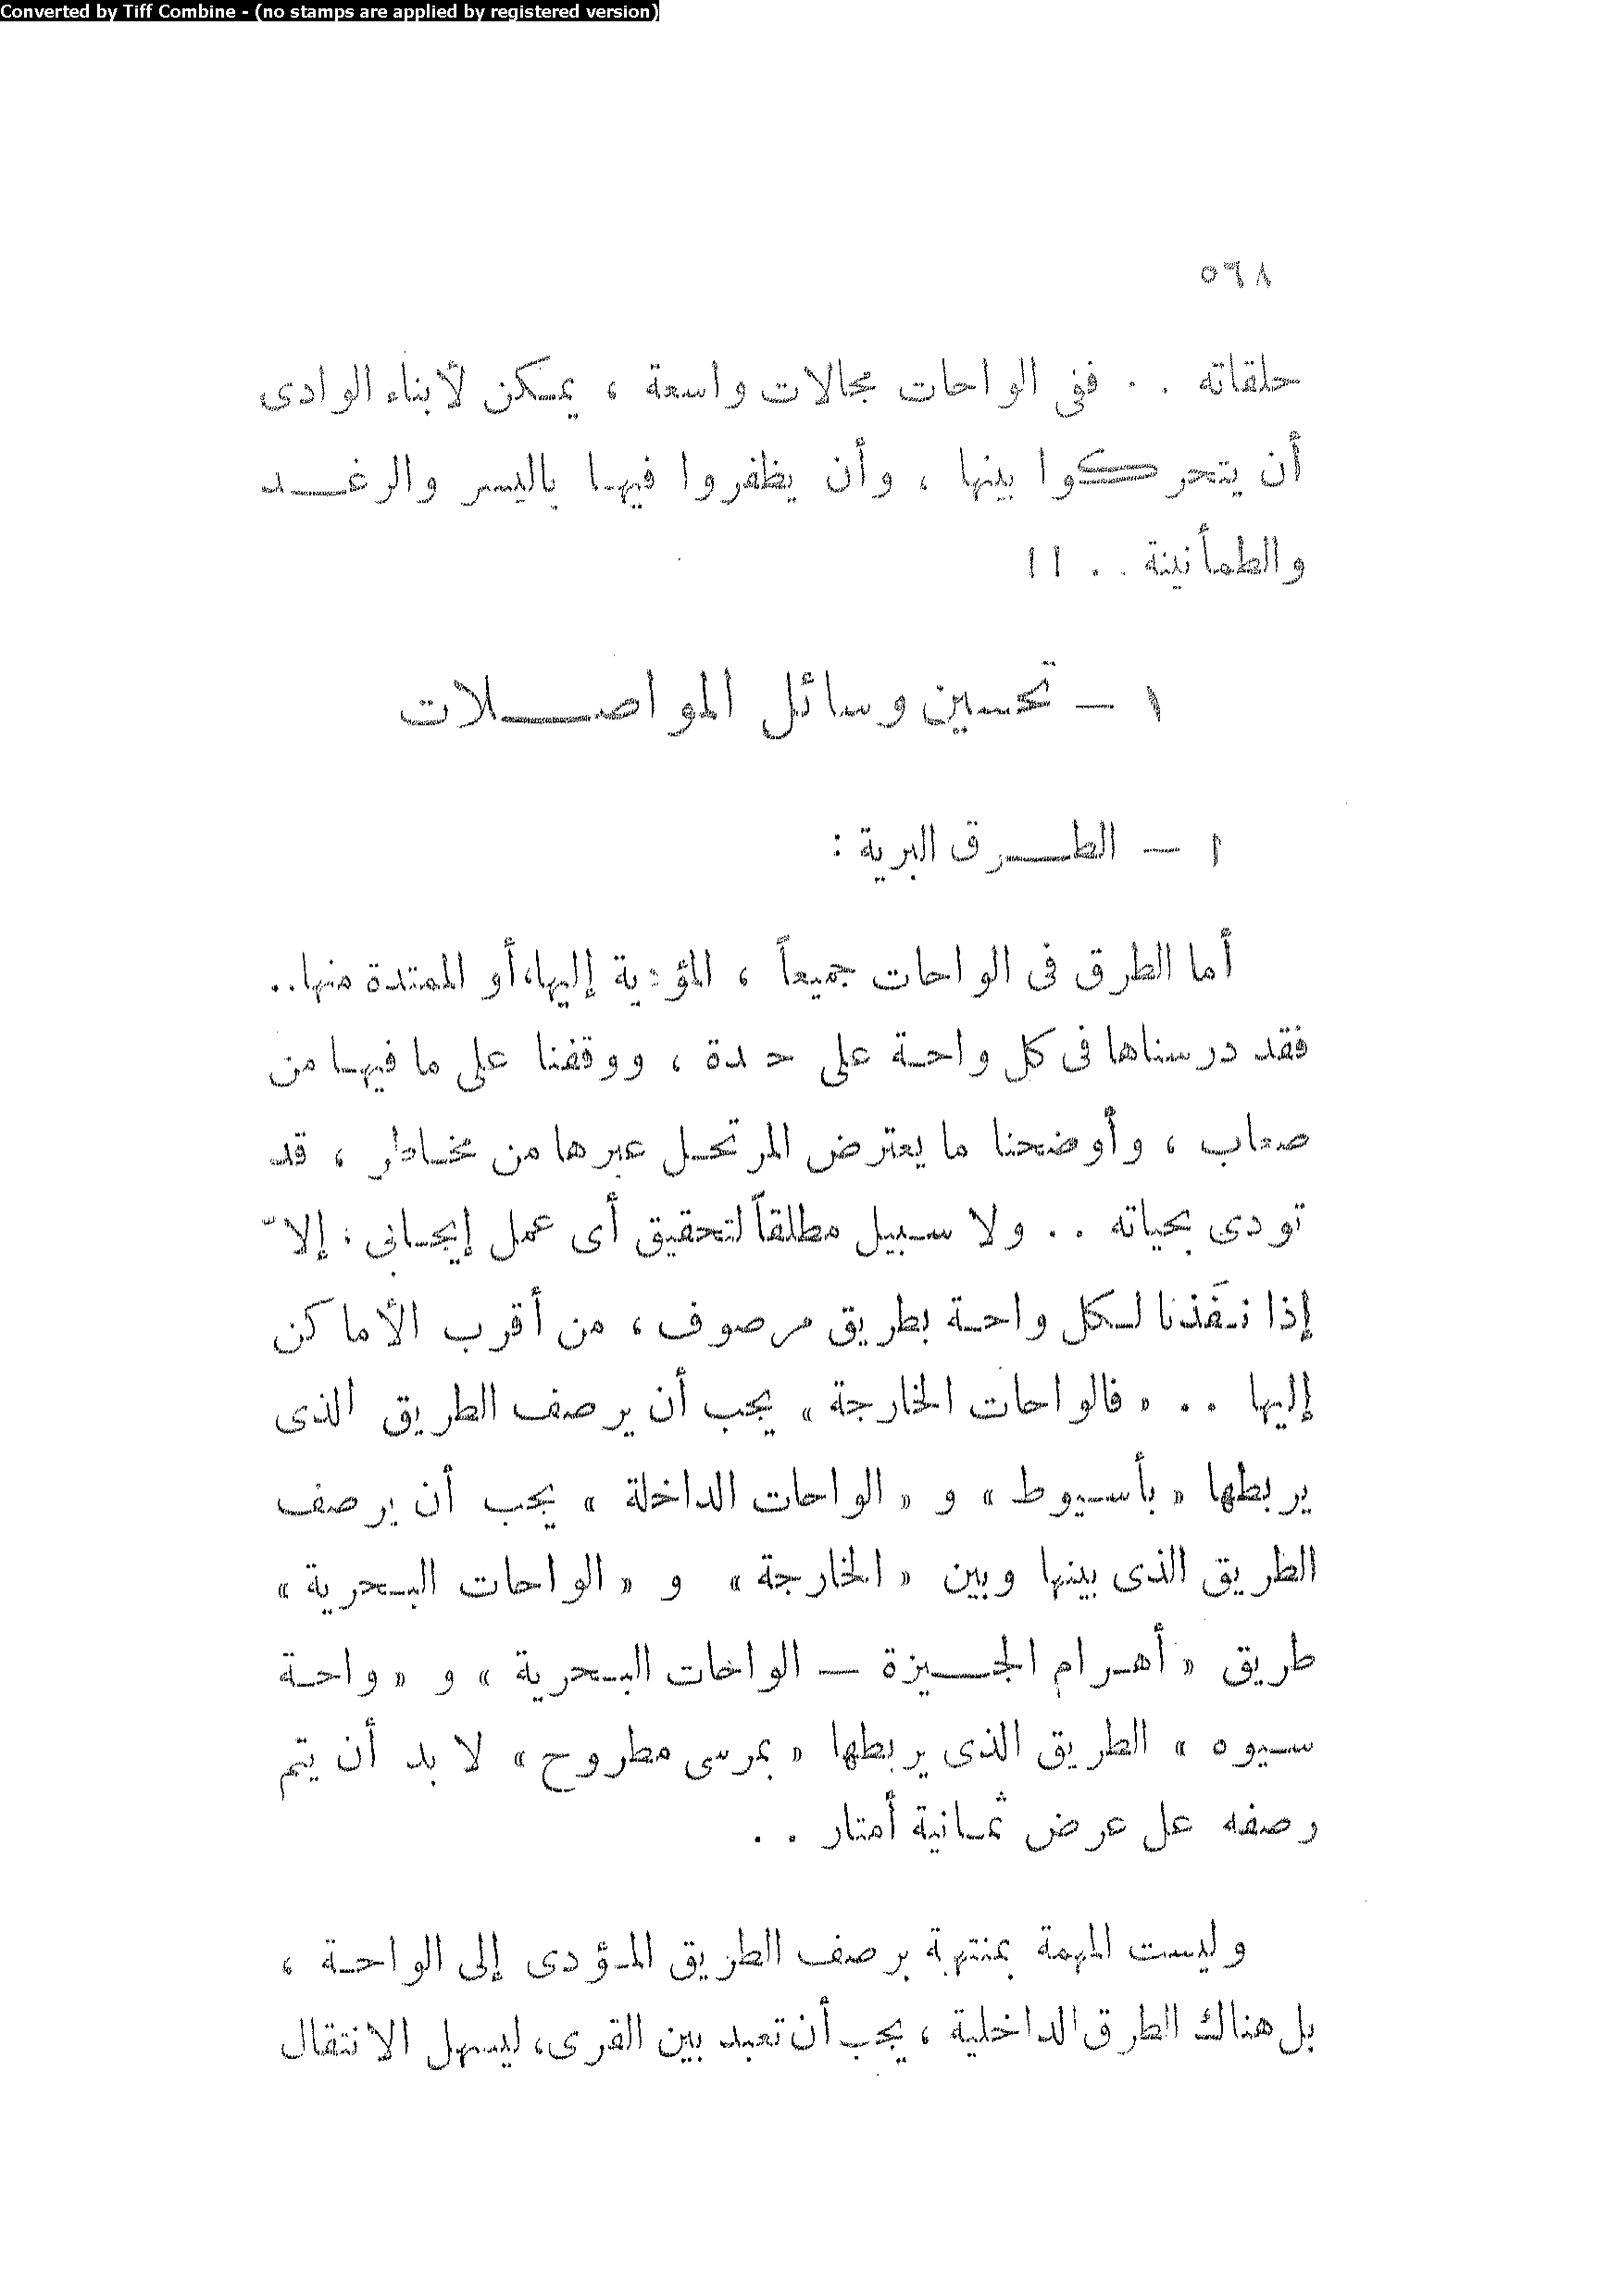 Converted by Tiff Combine - (no stamps are applied by registered version)
٥٦٨
حلقاته . . ففى الواحات مجالات واسعة ، يمكن لأبناء الوادى
أن يتحركوا بينها ، وأن يظفروا فيها باليسر والرغد
والطمأنينة . . !!
١ — تحسين وسائل المواصلات
ا — الطرق البرية :
أما الطرق فى الواحات جميعاً ، المؤدية إليها، أو الممتدة منها..
فقد درسناها فى كل واحة على حدة ، ووقفنا على ما فيها من
صعاب ، وأوضحنا ما يعترض المرتحل عبرها من مخاطر ، قد
تودى بحياته . . ولا سبيل مطلقاً لتحقيق أى عمل إيجابى ، إلاّ
إذا نفَذنا لكل واحة بطريق مرصوف ، من أقرب الأماكن
إليها . . « فالواحات الخارجة » يجب أن يرصف الطريق الذى
يربطها « بأسيوط » و « الواحات الداخلة » يجب أن يرصف
الطريق الذى بينها وبين « الخارجة » و « الواحات البحرية »
طريق « أهرام الجيزة — الواحات البحرية » و « واحة
سيوه » الطريق الذى يربطها « بمرسى مطروح » لا بد أن يتم
رصفه عل عرض ثمانية أمتار . .
وليست المهمة بمنتهية برصف الطريق المؤدى إلى الواحة ،
بل هناك الطرق الداخلية ، يجب أن تعبد بين القرى، ليسهل الانتقال